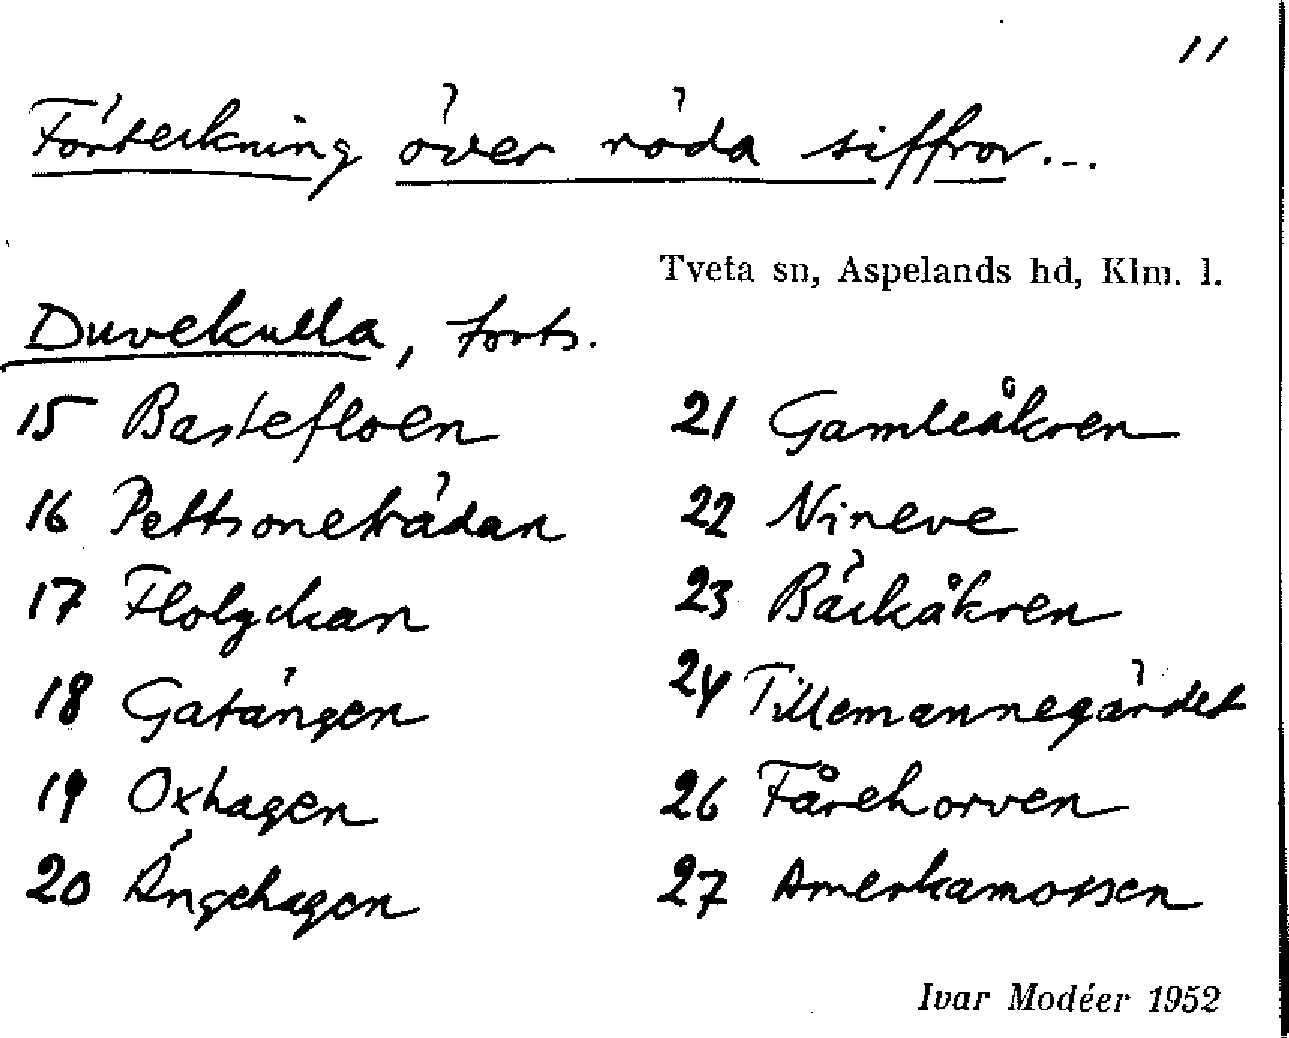 11
Förteckning över röda siffror...
Tveta sn, Aspelands hd, Klm. l.
Duvekulla, forts.
15 Bastefloen
16 Pettsoneträdan
17 Flolyckan
18 Gatängen
19 Oxhagen
20 Ängehagen
21 Gamleåkren
22 Nineve
23 Bäckåkren
24 Tillemannegärdet
26 Fårehorven
27 Amerkamossen
Ivar Modéer 1952